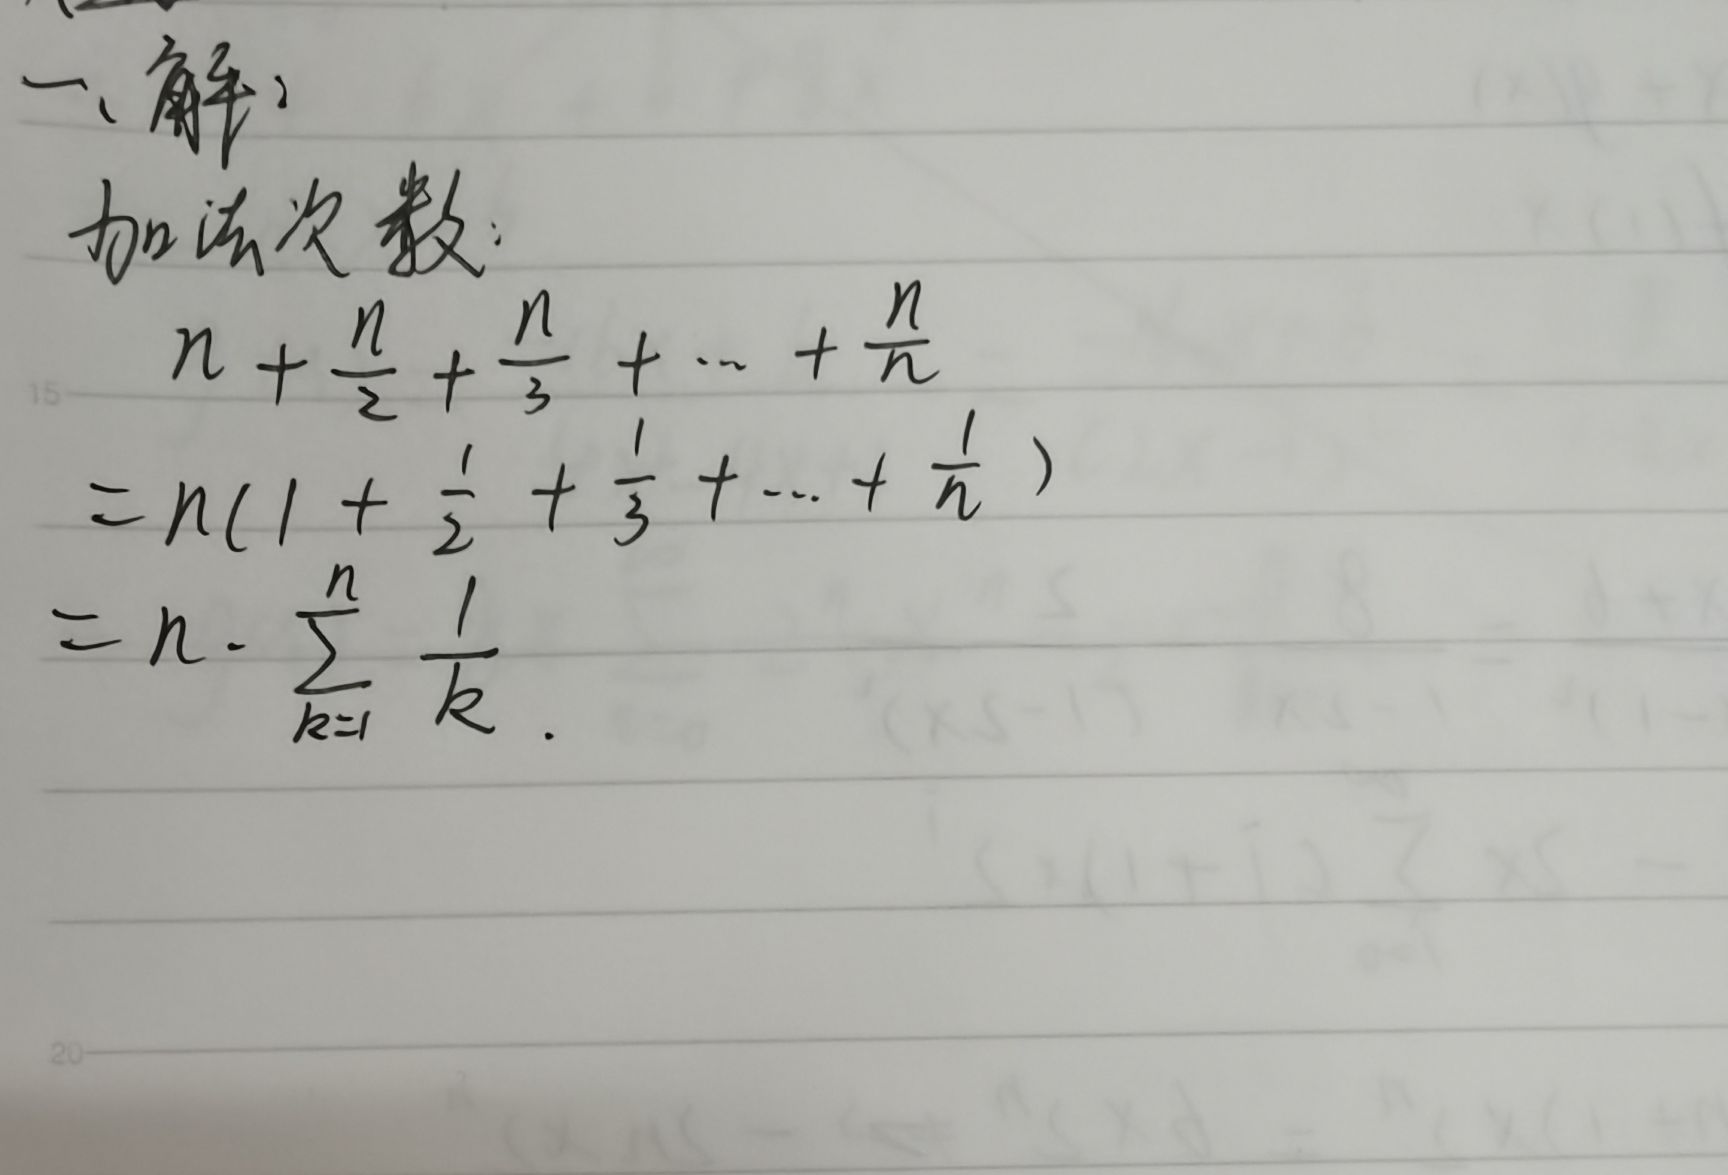 一、解：
加法次数：
n + n/2 + n/3 + … + n/n
= n(1 + 1/2 + 1/3 + … + 1/n)
= n · ∑_{k=1}^{n} 1/k .
15
20